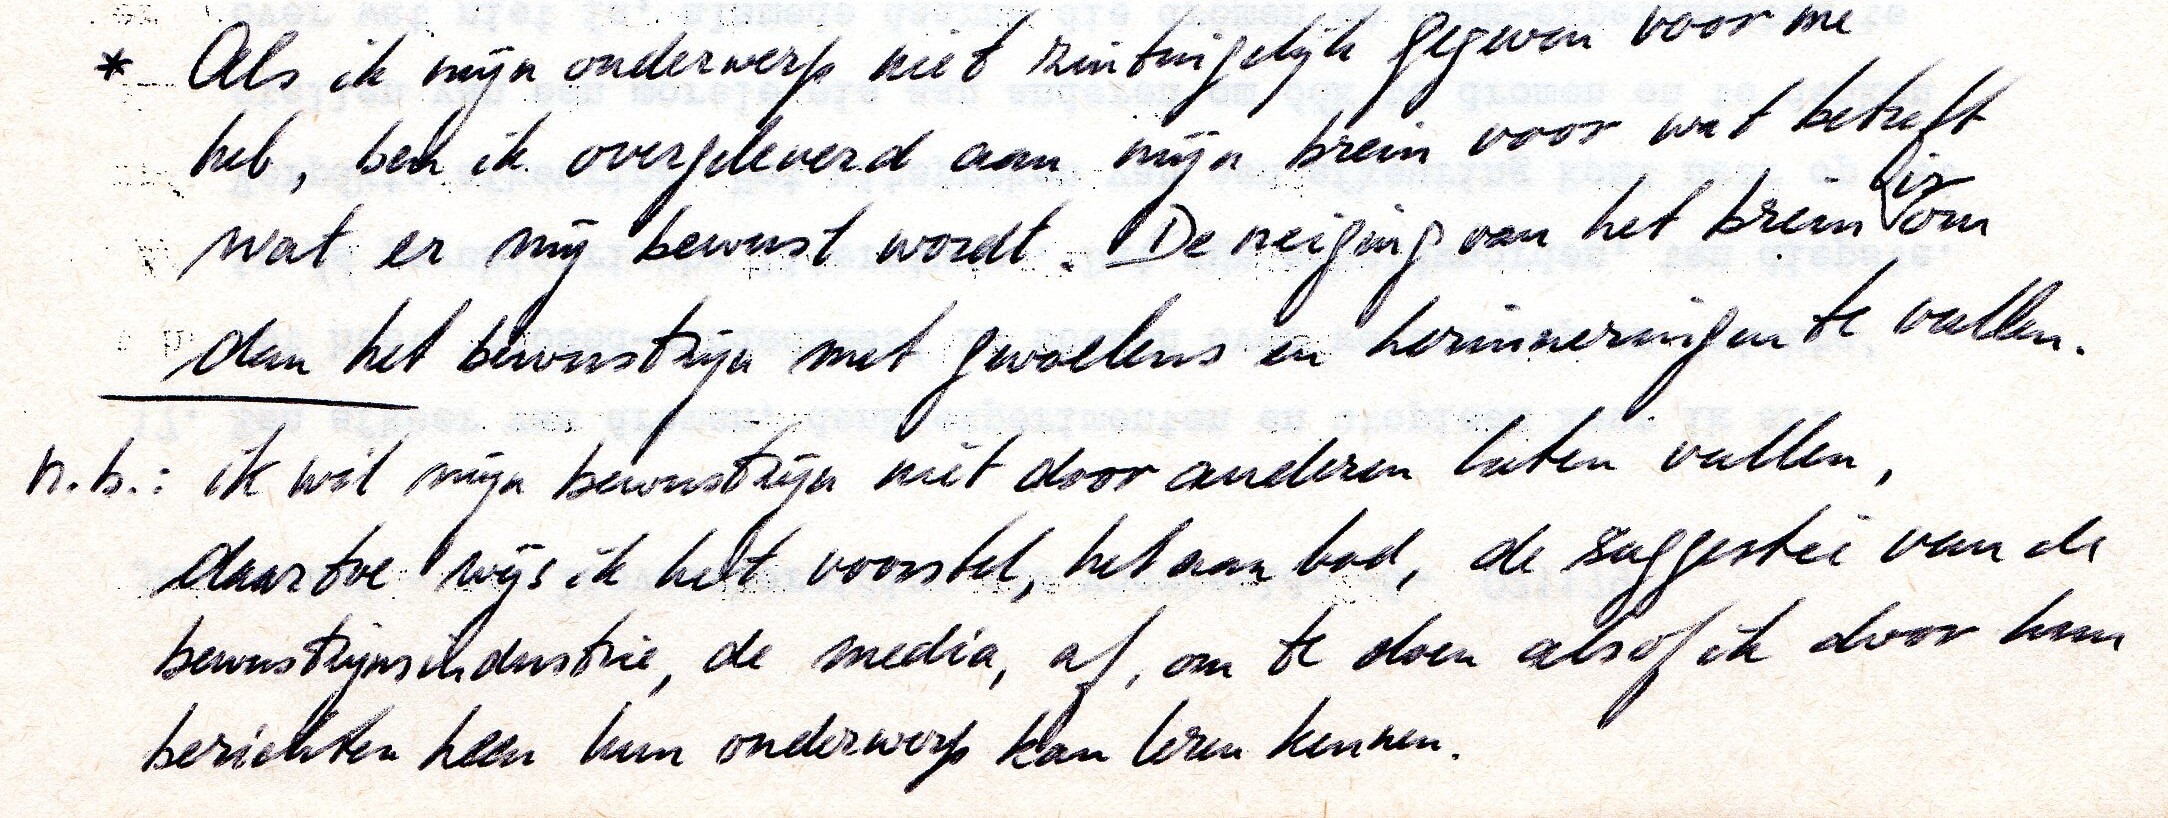 * Als ik mijn onderwerp niet zintuigelijk gegeven voor me
heb, ben ik overgeleverd aan mijn brein voor wat betreft
wat er mij bewust wordt. De neiging van het brein is om
dan het bewustzijn met gevoelens en herinneringen te vullen.
n.b.: ik wil mijn bewustzijn niet door anderen laten vullen,
daartoe wijs ik het voorstel, het aanbod, de suggestie van de
bewustzijnsindustrie, de media, af, om te doen alsof ik door hun
berichten heen hun onderwerp kan leren kennen.